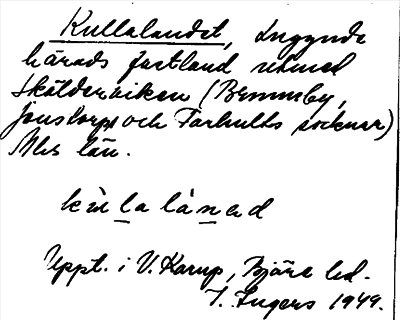 Kullalandet, Luggude
härads fastland utmed
Skälderviken (Brunnby,
Jonstorps och Farhults socknar)
Mhs län.
kùlalànad
Uppt. i V. Karup, Bjäre hd.
I. Ingers 1949.